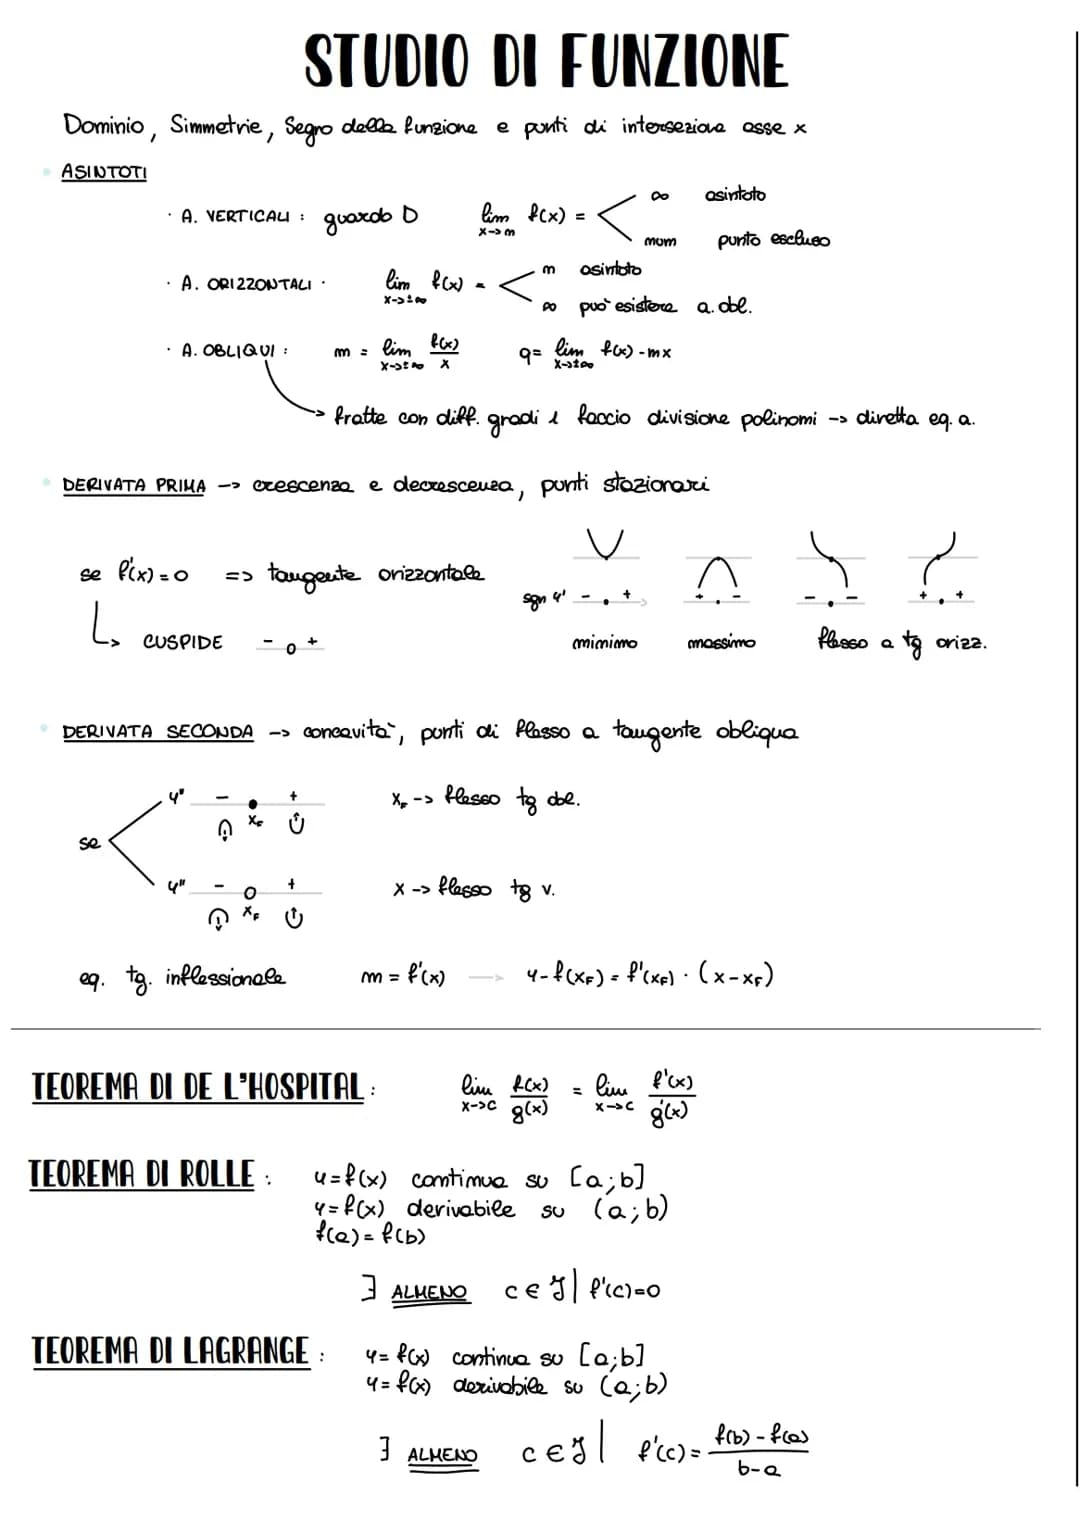 STUDIO DI FUNZIONE
Dominio, Simmetrie, Segno della funzione e punti di intersezione asse x
• ASINTOTI
· A. VERTICALI : guardo D lim x->m f(x) = < ∞ asintoto
num punto escluso
· A. ORIZZONTALI · lim x->±∞ f(x) = < m asintoto
∞ può esistere a. obl.
· A. OBLIQUI : m = lim x->±∞ f(x)/x q = lim x->±∞ f(x) - mx
fratte con diff. gradi 1 faccio divisione polinomi -> diretta eq. a.
• DERIVATA PRIMA -> crescenza e decrescenza, punti stazionari
se f'(x) = 0 => tangente orizzontale
sgn y' - . + + . - - . - + . +
CUSPIDE - o + minimo massimo flesso a tg orizz.
• DERIVATA SECONDA -> concavità, punti di flesso a tangente obliqua
y" - • + xF -> flesso tg obl.
xF
se
y" - o + x -> flesso tg v.
xF
eq. tg. inflessionale m = f'(x) -> y - f(xF) = f'(xF) · (x - xF)
TEOREMA DI DE L'HOSPITAL : lim x->c f(x)/g(x) = lim x->c f'(x)/g'(x)
TEOREMA DI ROLLE : y = f(x) continua su [a;b]
y = f(x) derivabile su (a;b)
f(a) = f(b)
∃ ALMENO c ∈ J | f'(c) = 0
TEOREMA DI LAGRANGE : y = f(x) continua su [a;b]
y = f(x) derivabile su (a;b)
∃ ALMENO c ∈ J | f'(c) = f(b) - f(a) / b - a